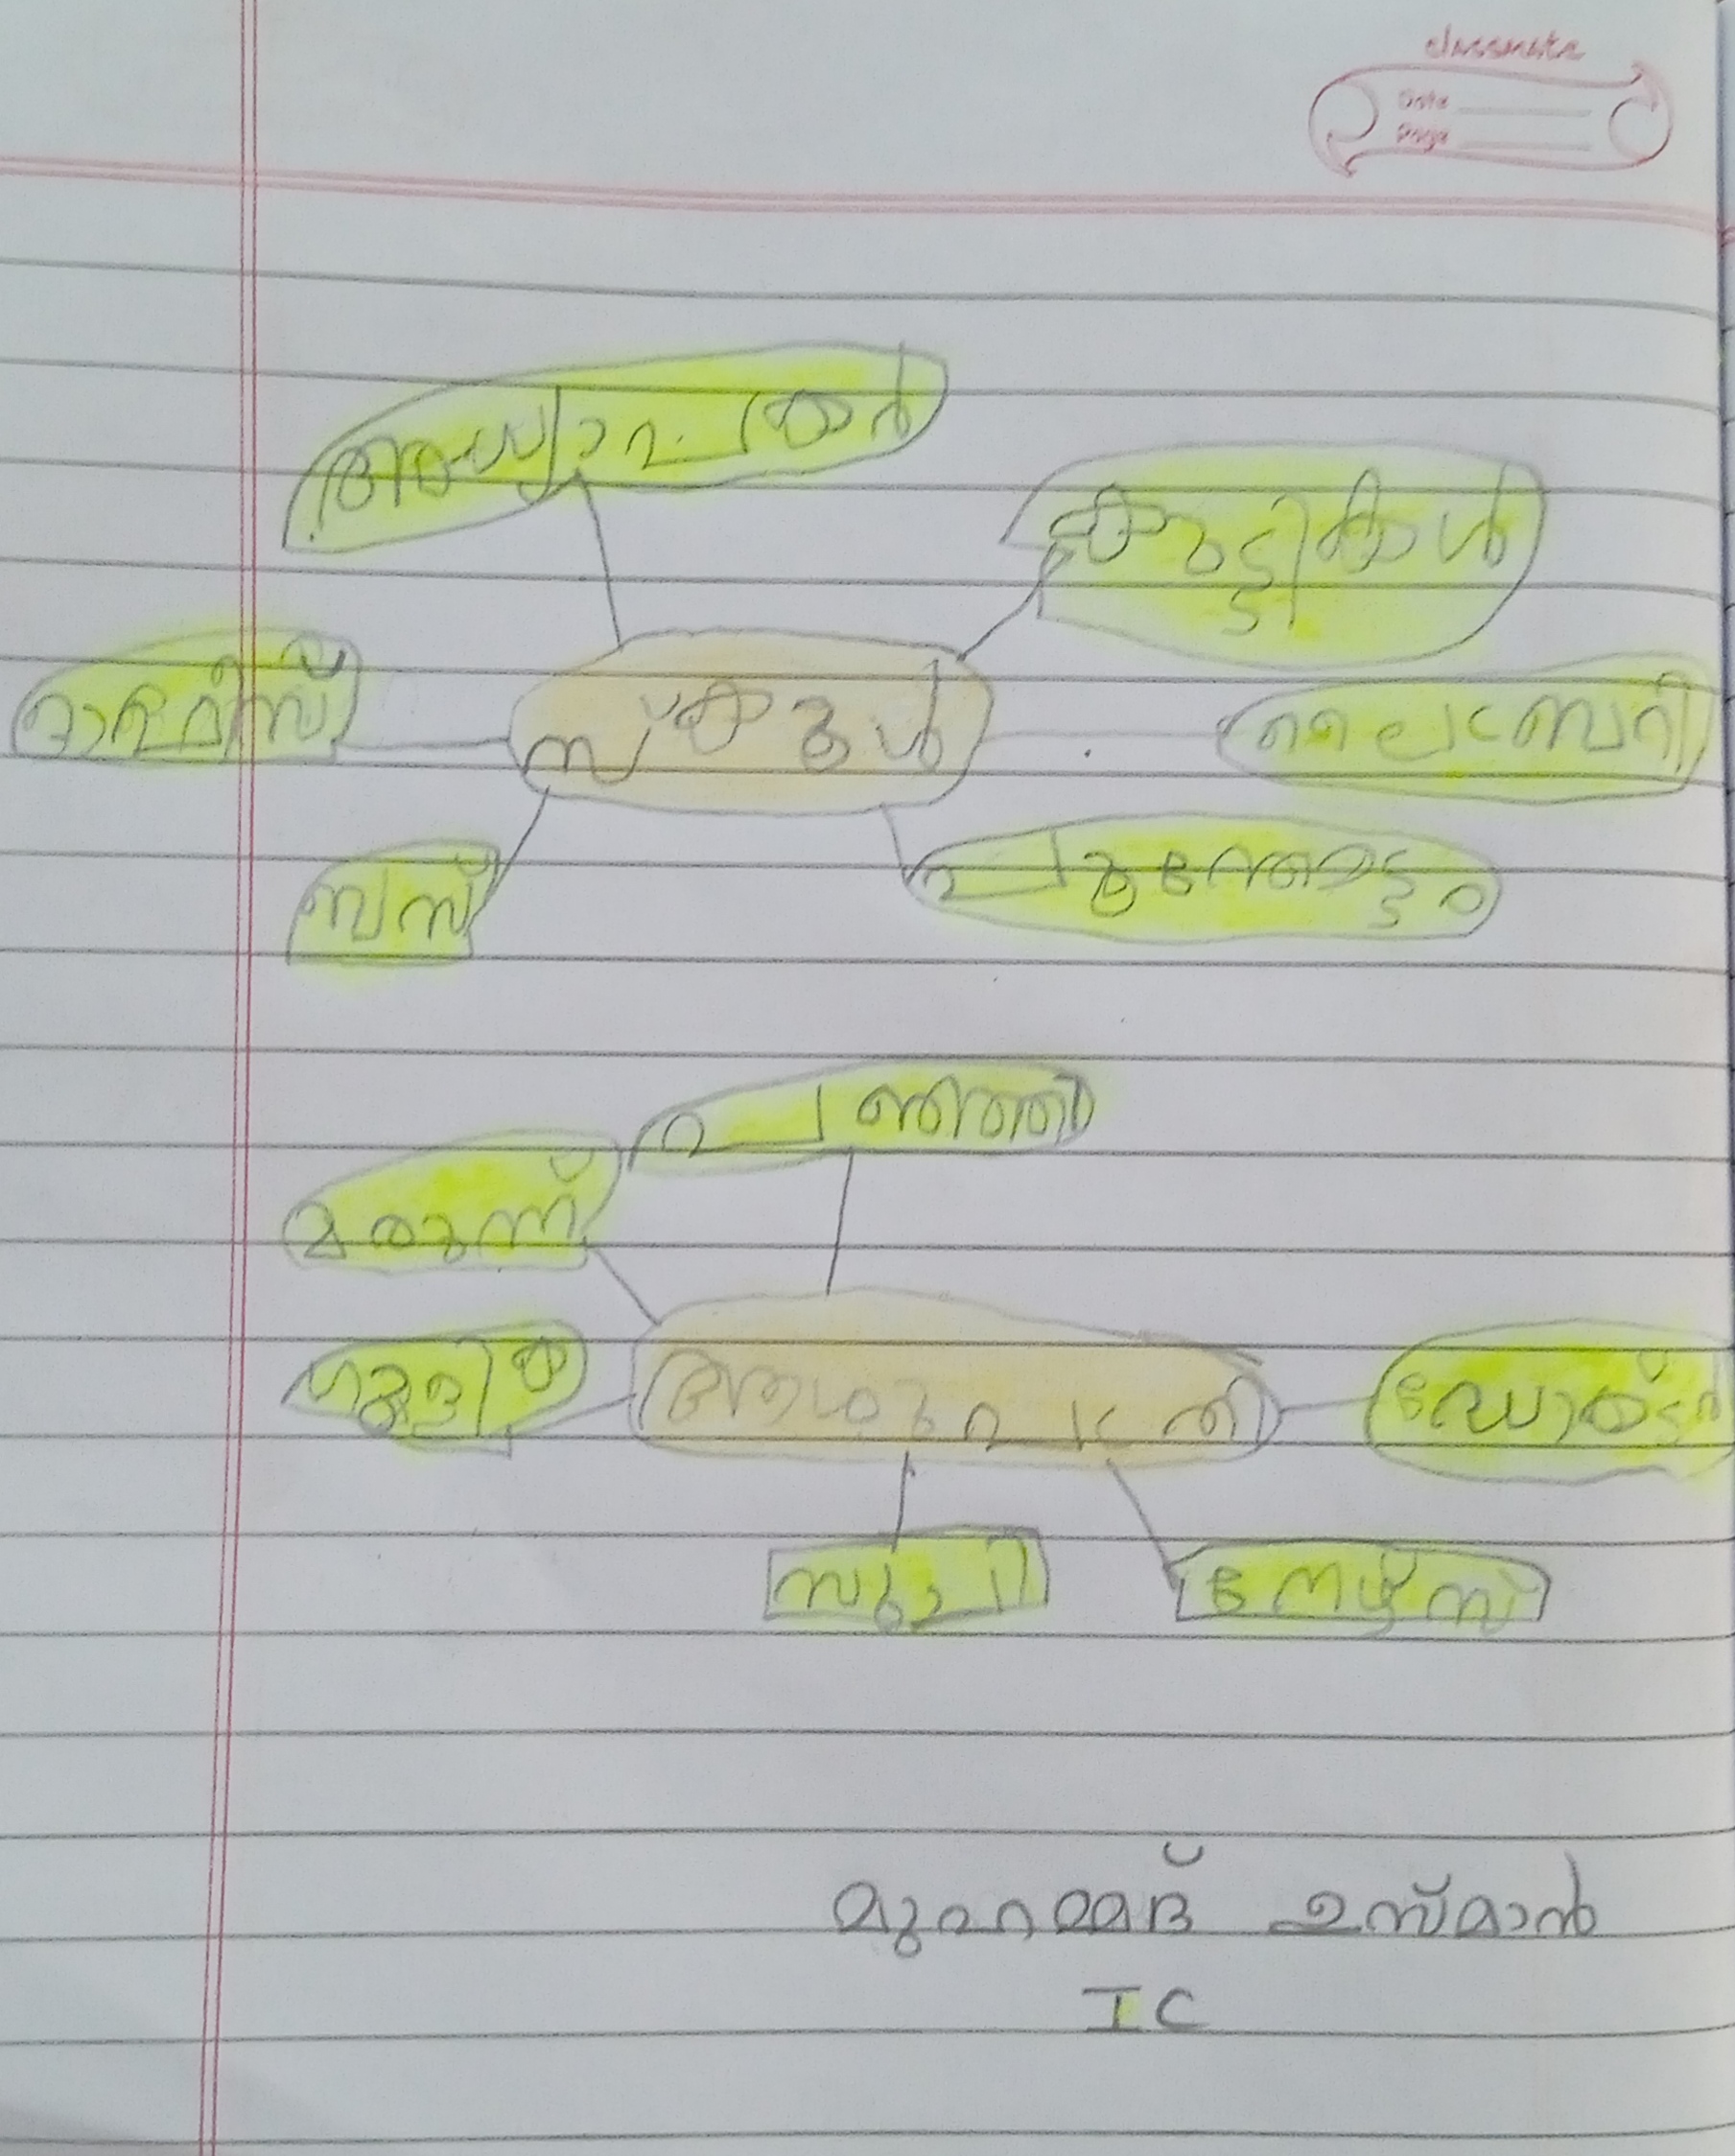 classmate
Date
Page
അധ്യാപകൻ
കുട്ടികൾ
സ്കൂൾ
ലൈബ്രറി
ബസ്
പൂന്തോട്ടം
പഞ്ഞി
മരുന്ന്
ഗുളിക
ആശുപത്രി
ഡോക്ടർ
സൂചി
നേഴ്സ്
മുഹമ്മദ് ഉസ്മാൻ
I C